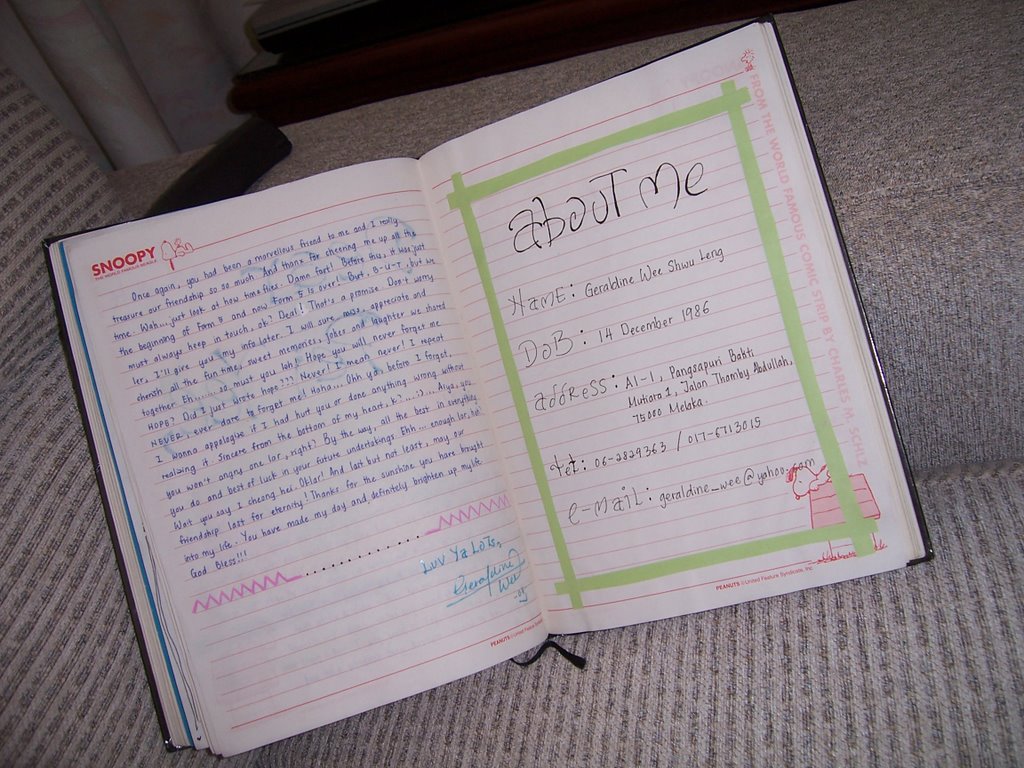 SNOOPY
THE WORLD FAMOUS BEAGLE
Once again, you had been a marvellous friend to me and I really
treasure our friendship so so much. And thanx for cheering me up all the
time. Wah... just look at how time flies. Damn fast! Before this, it was just
the beginning of form 5 and now form 5 is over! But, B-U-T, but we
must always keep in touch, ok? Deal! That's a promise. Don't worry
ler, I'll give you my info later. I will sure miss, appreciate and
cherish all the fun time, sweet memories, jokes and laughter we shared
together. Eh...... so must you lah! Hope you will never forget me
HOPE? Did I just wrote hope??? Never! I mean never! I repeat
NEVER, ever dare to forget me! Haha... Ohh ya, before I forget,
I wanna appologise if I had hurt you or done anything wrong without
realizing it. Sincere from the bottom of my heart, k? ... Aiya, you
you won't angry one lor, right? By the way, all the best in everything
you do and best of luck in your future undertakings. Ehh... enough lor,
Wait you say I cheong hei. Okla! And last but not least, may our
friendship last for eternity! Thanks for the sunshine you have brought
into my life. You have made my day and definitely brighten up my life.
God Bless!!!
Luv Ya LoTs,
Geraldine
Wee
PEANUTS © United Feature Syndicate
ABOUT ME
NAME: Geraldine Wee Shwu Leng
DOB: 14 December 1986
ADDRESS: A1-1, Pangsapuri Bakti
Mutiara 1, Jalan Thamby Abdullah,
75000 Melaka.
Tel: 06-2829363 / 017-6713015
e-mail: geraldine_wee@yahoo.com
PEANUTS © United Feature Syndicate, Inc.
FROM THE WORLD FAMOUS COMIC STRIP BY CHARLES M. SCHLZ